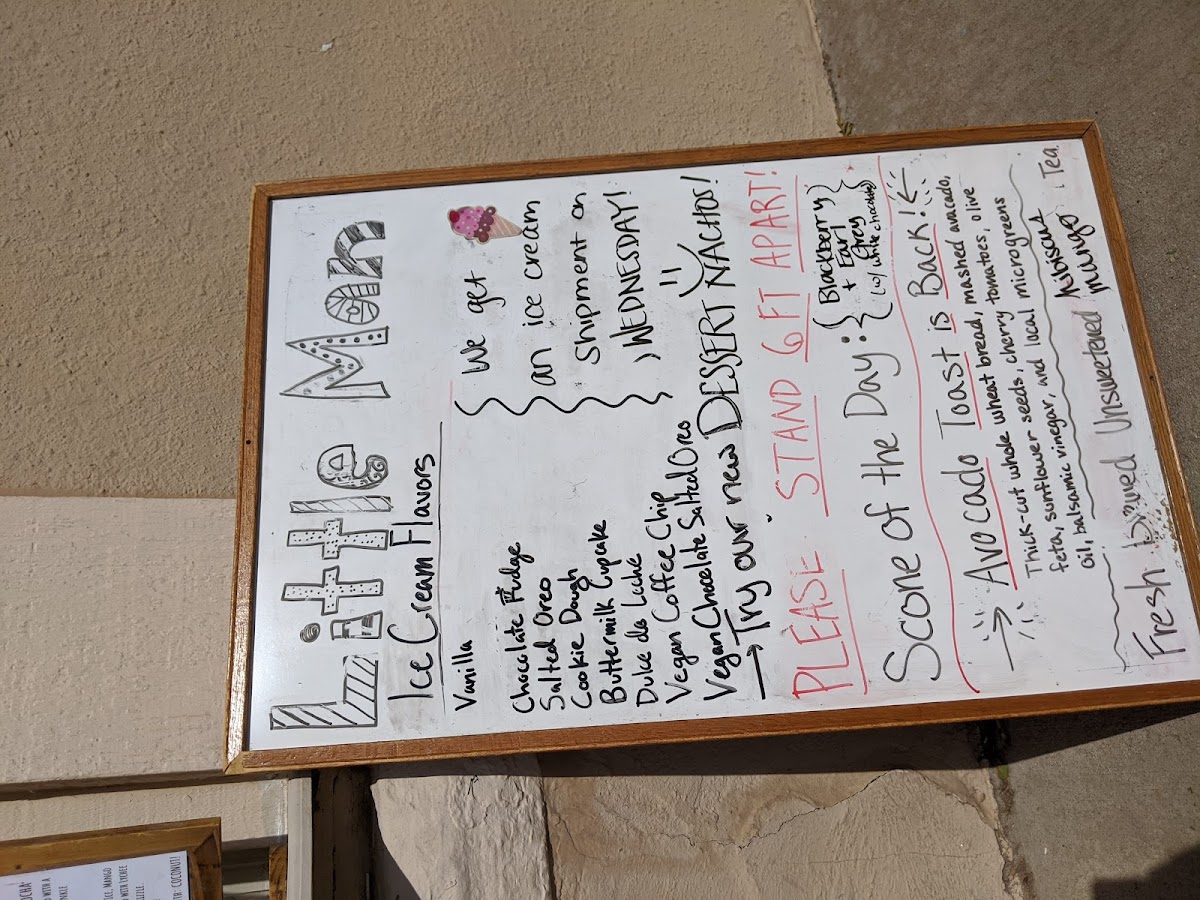 Little Man
Ice Cream Flavors
Vanilla
Chocolate Fudge
Salted Oreo
Cookie Dough
Buttermilk Cupcake
Dulce de Leché
Vegan Coffee Chip
Vegan Chocolate Salted Oreo
We get
an ice cream
shipment on
WEDNESDAY!
→ Try our new DESSERT NACHOS!
PLEASE STAND 6 FT APART!
Scone of the Day: { Blackberry
+ Earl
Grey
(w/ white chocolate) }
→ Avocado Toast is Back! ←
Thick-cut whole wheat bread, mashed avacado,
feta, sunflower seeds, cherry tomatoes, olive
oil, balsamic vinegar, and local microgreens
Fresh brewed Unsweetened hibiscus Tea
mango
MANGO
WITH LYCHEE
COCONUT!